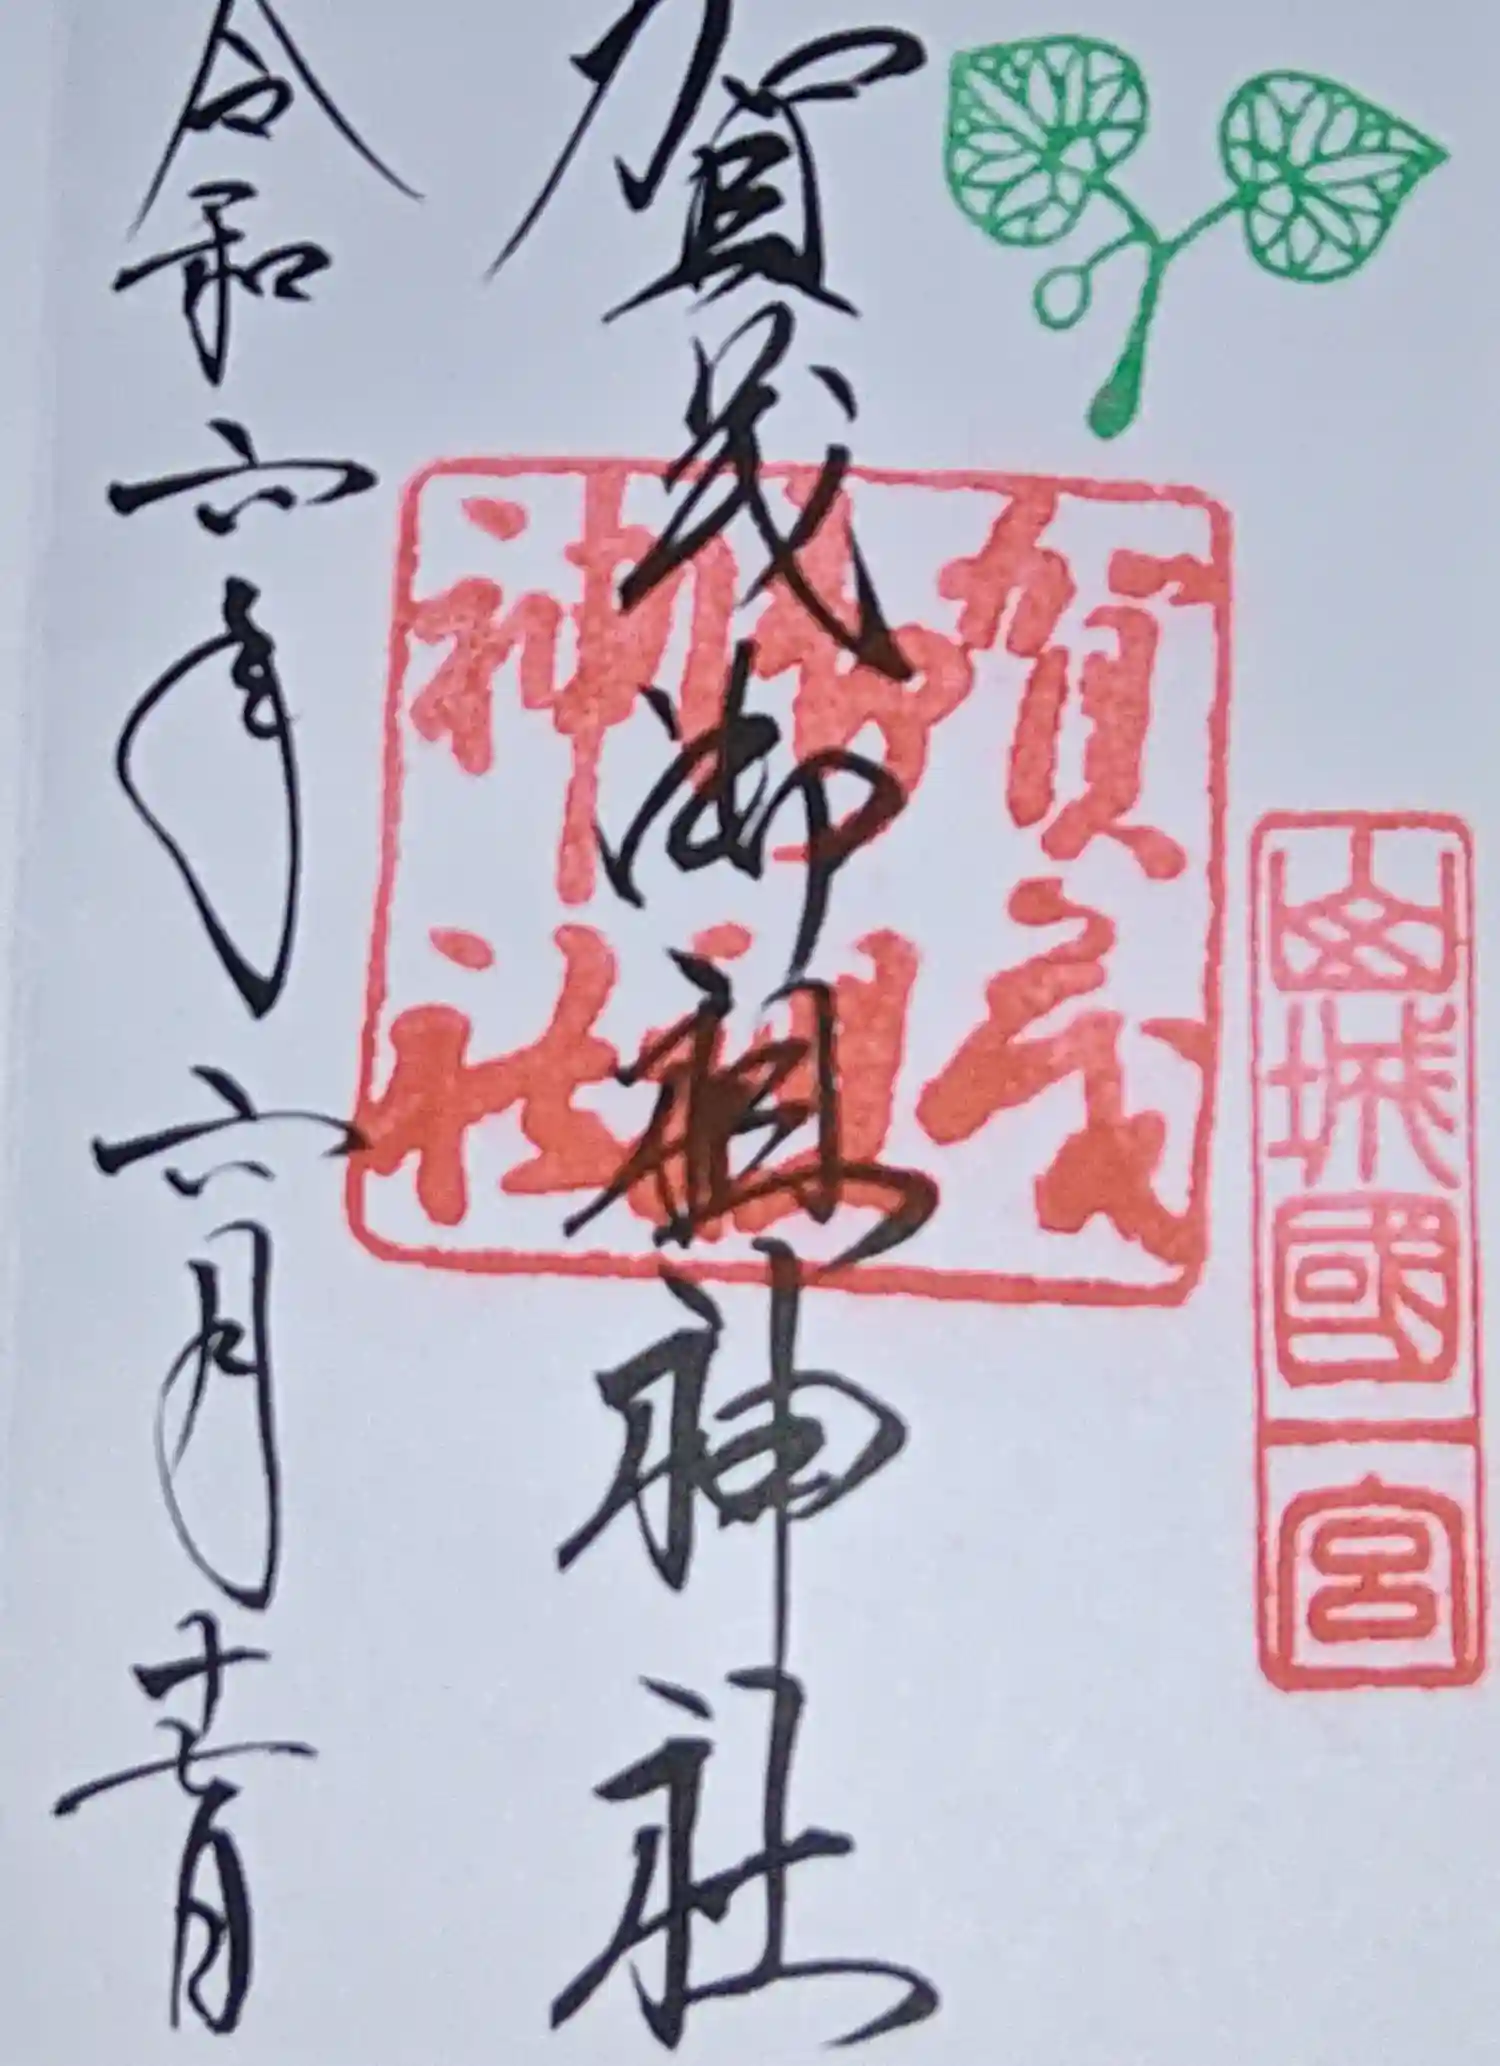 山城國
一宮
賀茂御祖神社
賀茂
御祖
神社
令和六年六月十七日